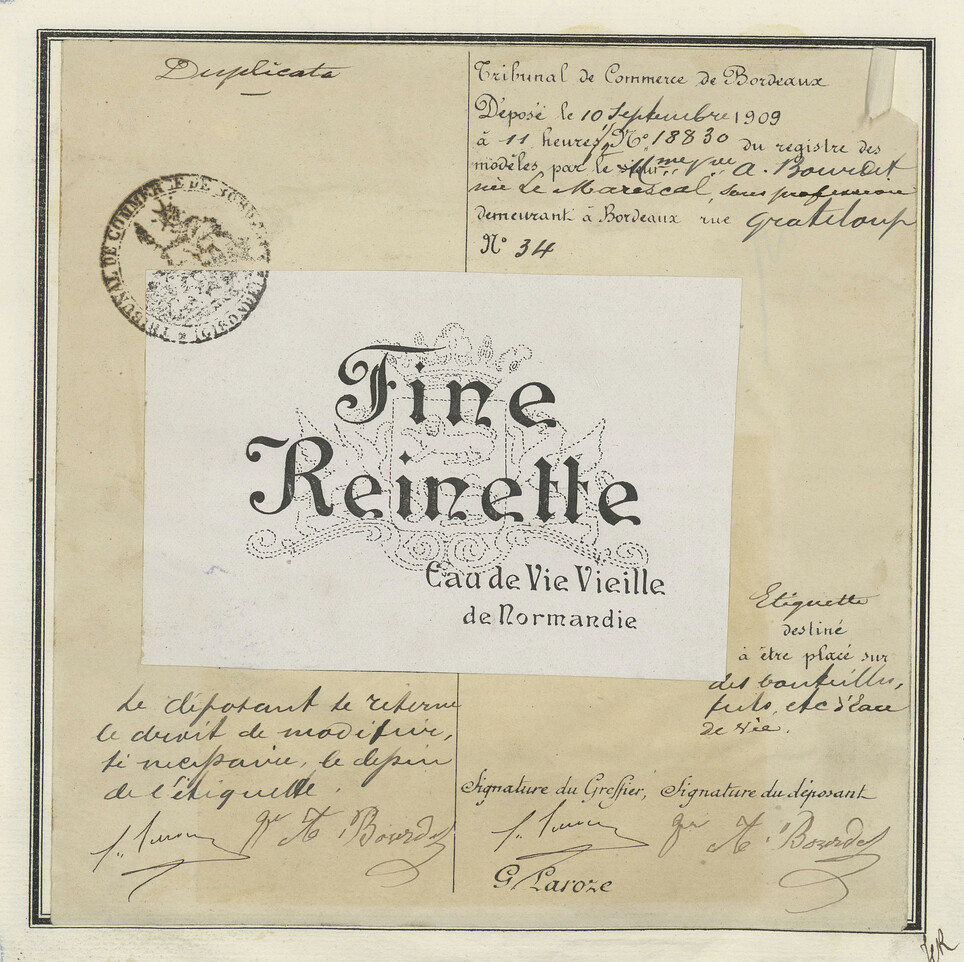 Duplicata
Tribunal de Commerce de Bordeaux
Déposé le 10 Septembre 1909
à 11 heures 1/2 N° 18830 du registre des
modèles par le Mme Vve A. Bourdet
née Le Marescal, sans profession
demeurant à Bordeaux rue Grateloup
N° 34
TRIBUNAL DE COMMERCE DE BORDEAUX (GIRONDE)
Fine
Reinette
Eau de Vie Vieille
de Normandie
Etiquette
destiné
à être placé sur
des bouteilles,
futs, etc d'Eau
de vie.
Le déposant se réserve
le droit de modifier,
si nécessaire, le dessin
de l'étiquette.
Signature du Greffier, Signature du déposant
Vve A. Bourdet
Vve A. Bourdet
G. Laroze